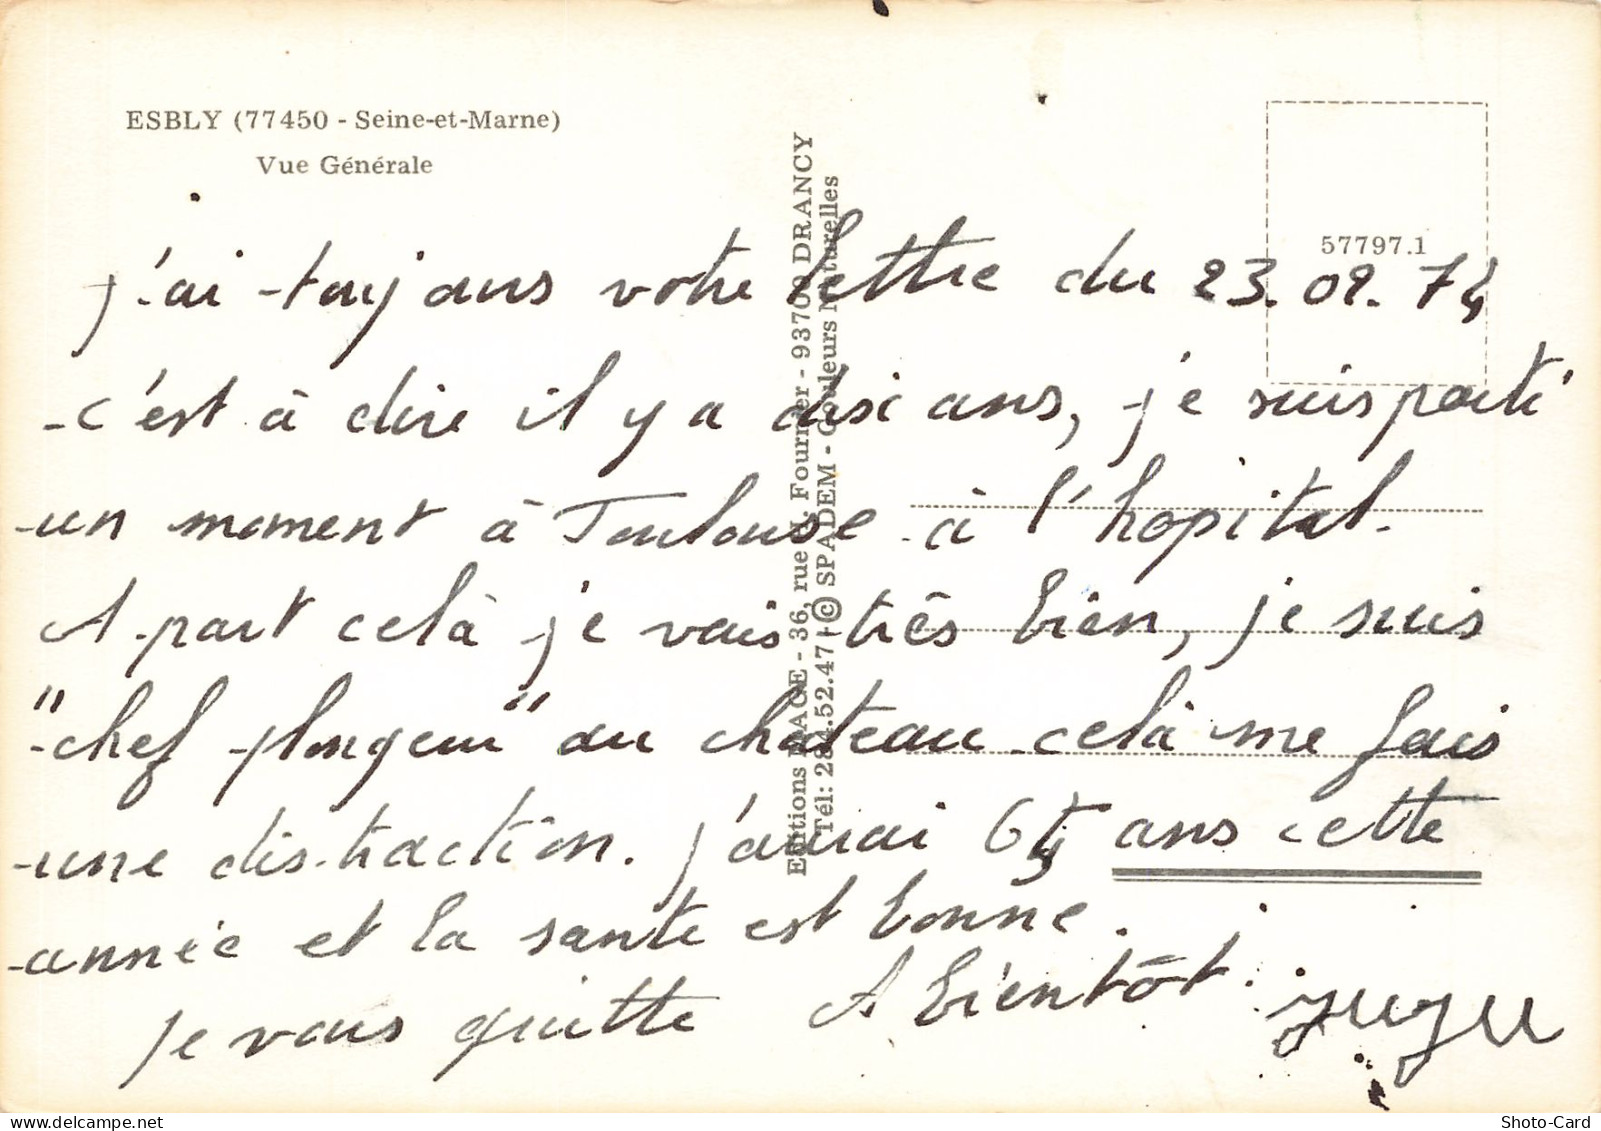 ESBLY (77450 - Seine-et-Marne)
Vue Générale
57797.1
Editions MAGE - 36, rue J. Fournier - 93700 DRANCY
Tél: 284.52.47 - © SPADEM - Couleurs Naturelles
j'ai toujours votre lettre du 23.02.74
c'est à dire il y a dix ans, je suis parti
un moment à Toulouse à l'hopital.
A part celà je vais très bien, je suis
"chef plongeur" au chateau celà me fais
une distraction. j'aurai 64 ans cette
année et la sante est bonne.
je vous quitte A bientôt. juju
Shoto-Card